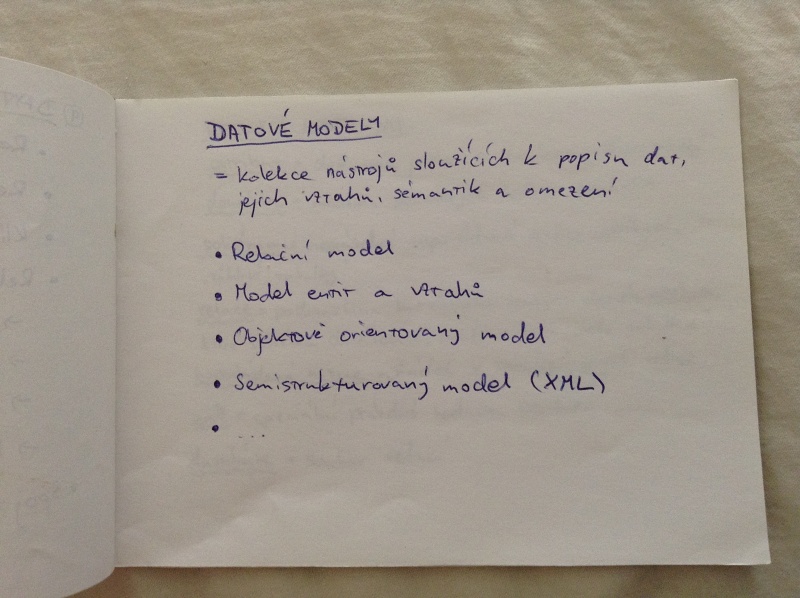 DATOVÉ MODELY
= kolekce nástrojů sloužících k popisu dat,
jejich vztahů, sémantik a omezení
• Relační model
• Model entit a vztahů
• Objektově orientovaný model
• Semistrukturovaný model (XML)
• ...